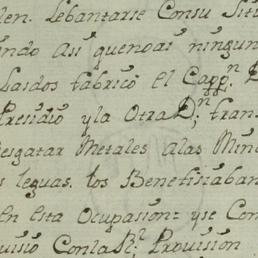 len. Lebantarse Consu Situ
endo Asi quenoai ningun
Laidos fabricó el Capp.n
Presidio yla Otra D,n tran
esgatar Metales alas Min
s leguas. los Benefisiaban
en esta Ocupasion: yse Con
uisio Conla R.l Provision